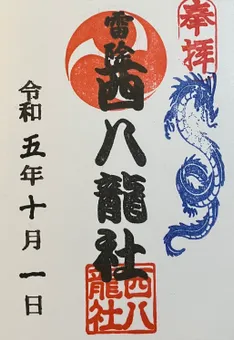 奉拝
雷除
西八龍社
西八
龍社
令和五年十月一日